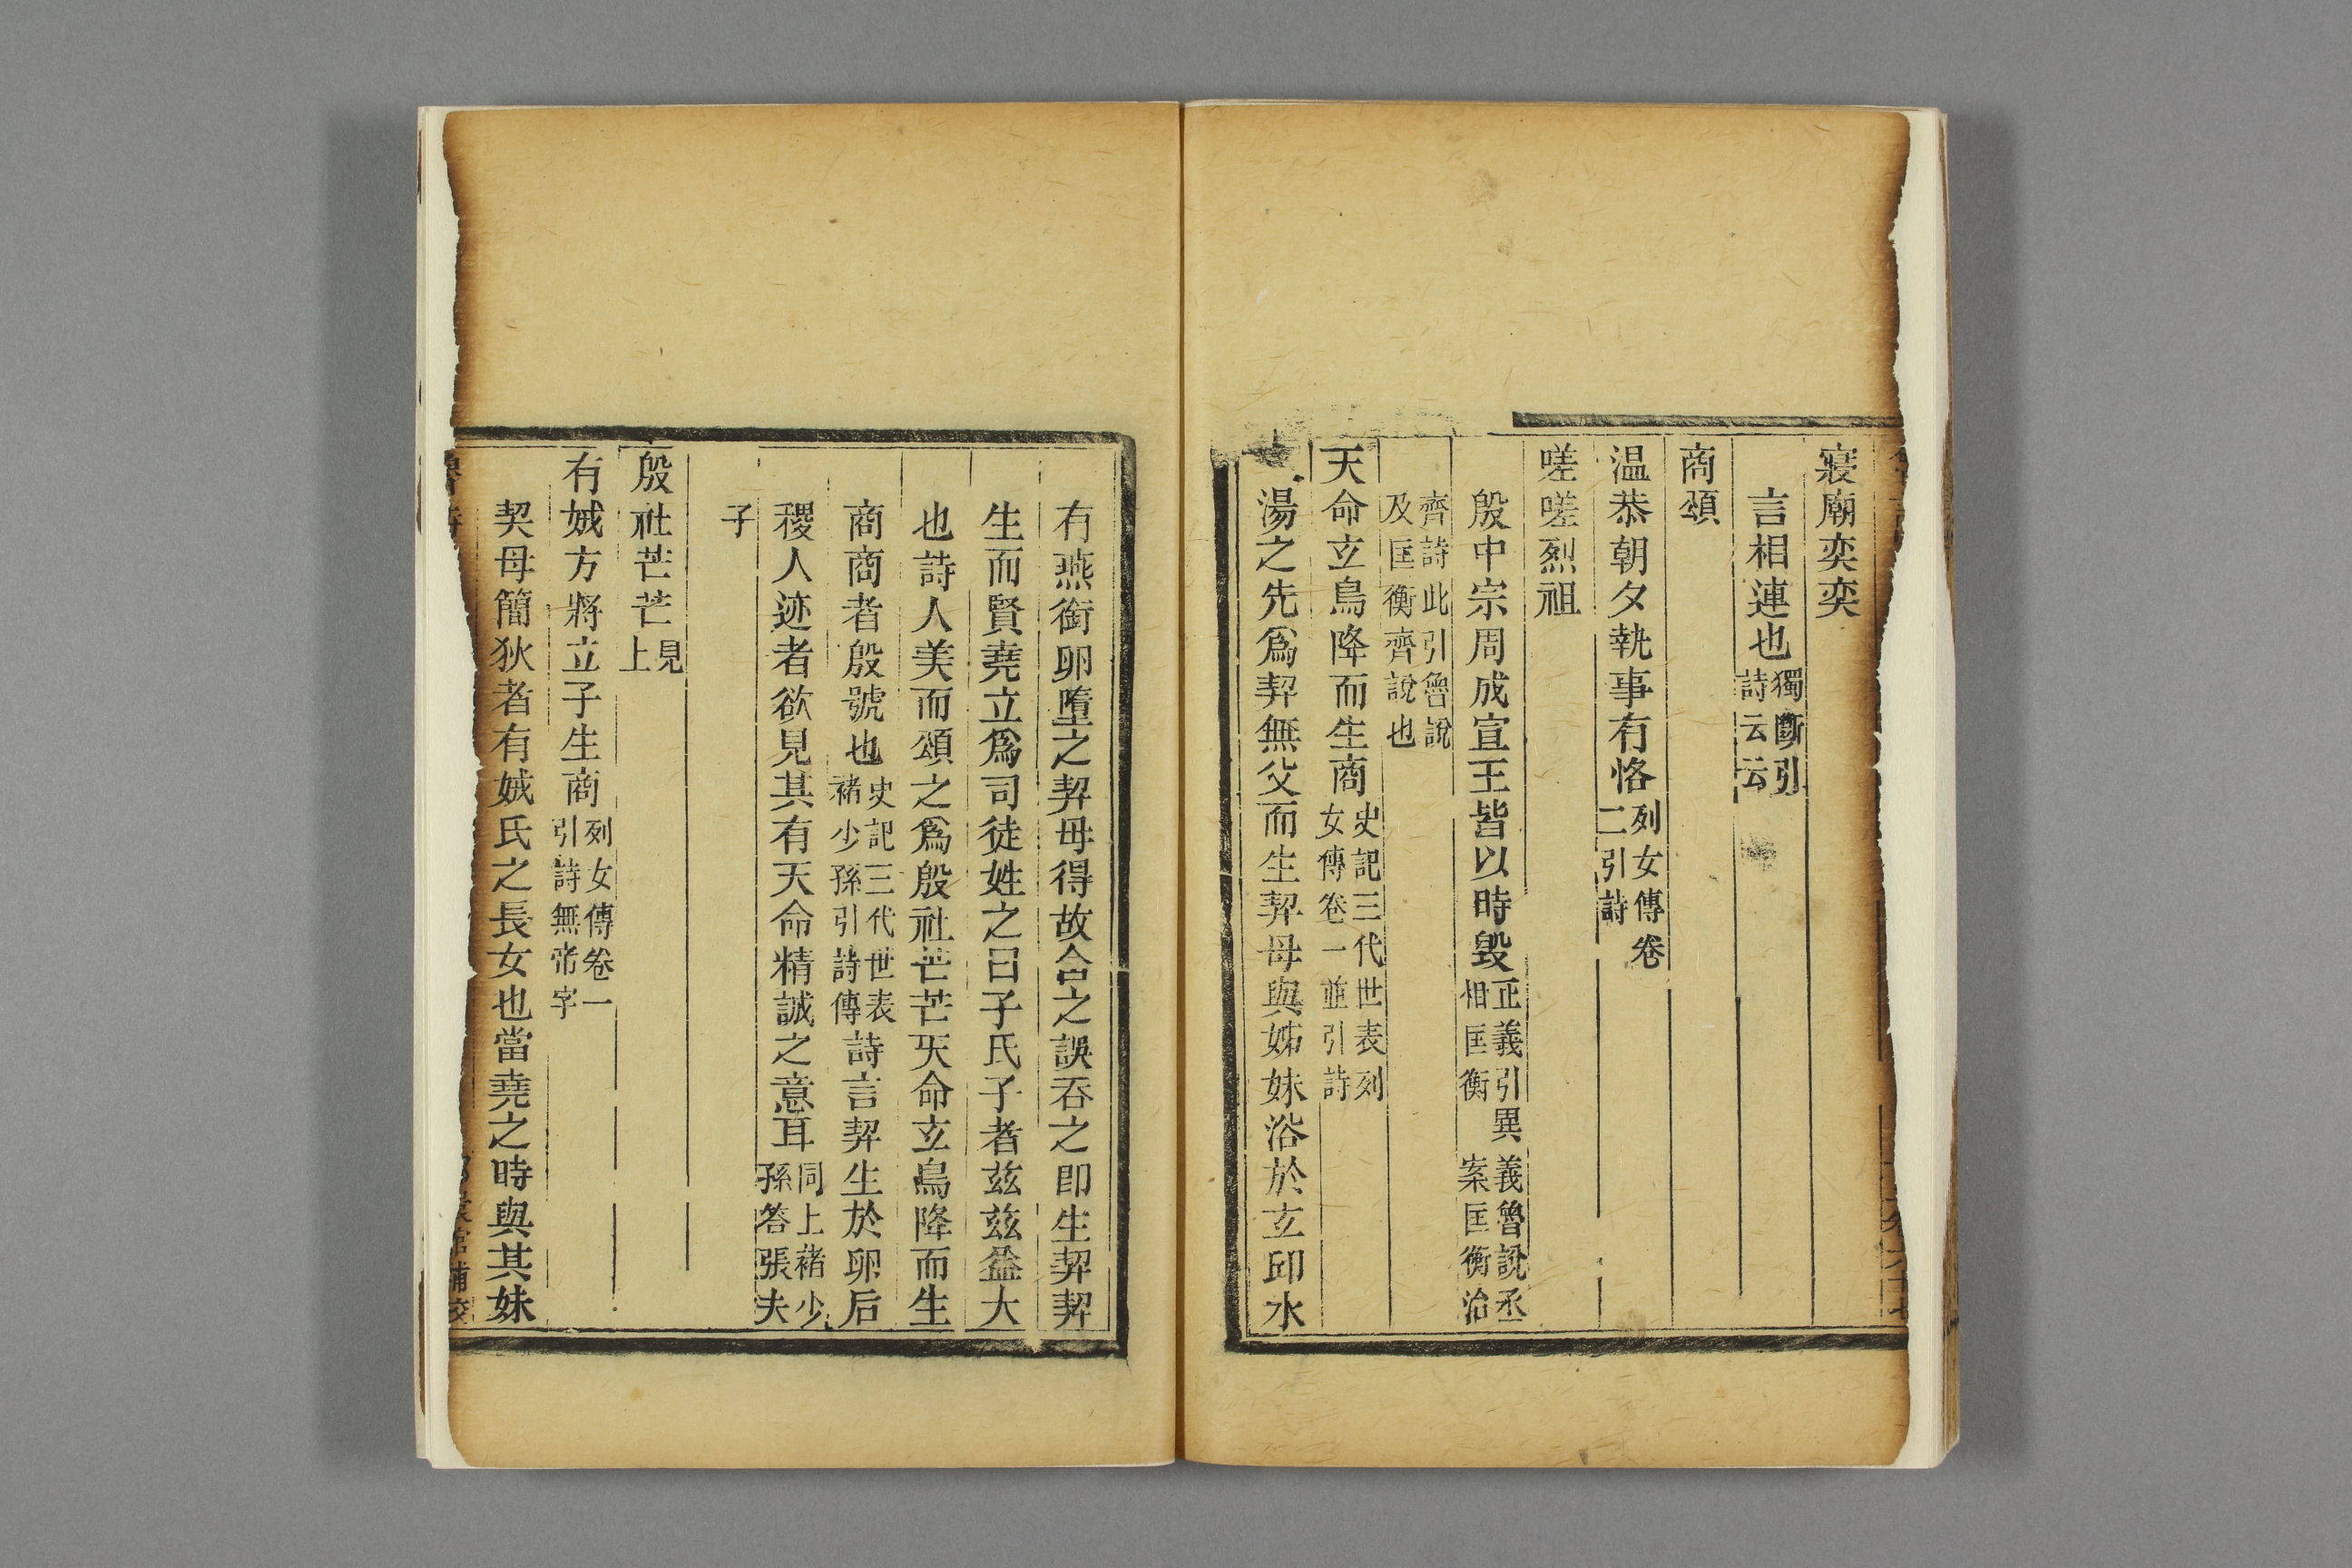 寢廟奕奕
言相連也獨斷引詩云云
商頌
温恭朝夕執事有恪列女傳卷二引詩
嗟嗟烈祖
殷中宗周成宣王皆以時毀正義引異義魯說丞相匡衡案匡衡治
齊詩此引魯說及匡衡齊說也
天命玄鳥降而生商史記三代世表列女傳卷一並引詩
湯之先爲契無父而生契母與姊妹浴於玄邱水
有燕銜卵墮之契母得故含之誤吞之卽生契契
生而賢堯立爲司徒姓之曰子氏子者兹兹益大
也詩人美而頌之爲殷社芒芒天命玄鳥降而生
商商者殷號也史記三代世表褚少孫引詩傳詩言契生於卵后
稷人迹者欲見其有天命精誠之意耳同上褚少孫答張夫
子
殷社芒芒見上
有娀方將立子生商列女傳卷一引詩無帝字
契母簡狄者有娀氏之長女也當堯之時與其妹